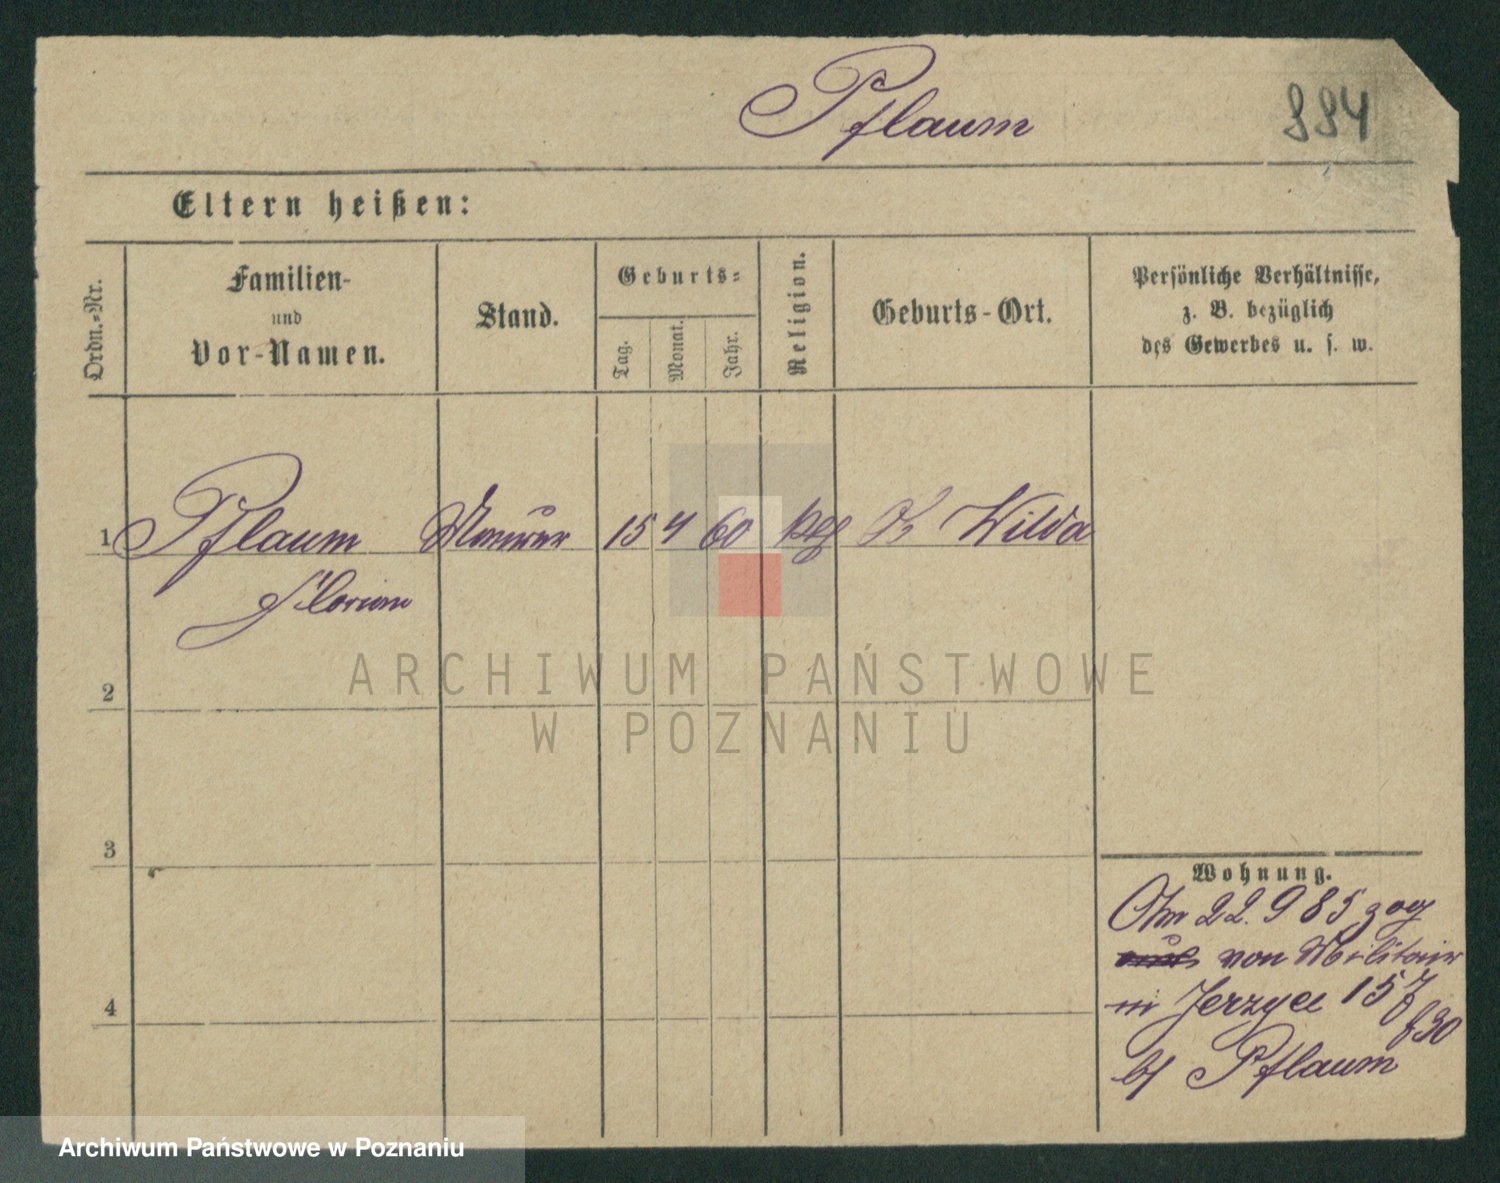 Pflaum
994
Eltern heißen:
Ordn.-Nr.
Familien-
und
Vor-Namen.
Stand.
Geburts-
Tag.
Monat.
Jahr.
Religion.
Geburts-Ort.
Persönliche Verhältnisse,
z. B. bezüglich
des Gewerbes u. s. w.
1 Pflaum Maurer 15 4 60 kth Wilda
Florian
2
3
4
Wohnung.
22. 9 85 zog
von Militair
in Jerzyce 157
b/ Pflaum
ARCHIWUM PAŃSTWOWE
W POZNANIU
Archiwum Państwowe w Poznaniu